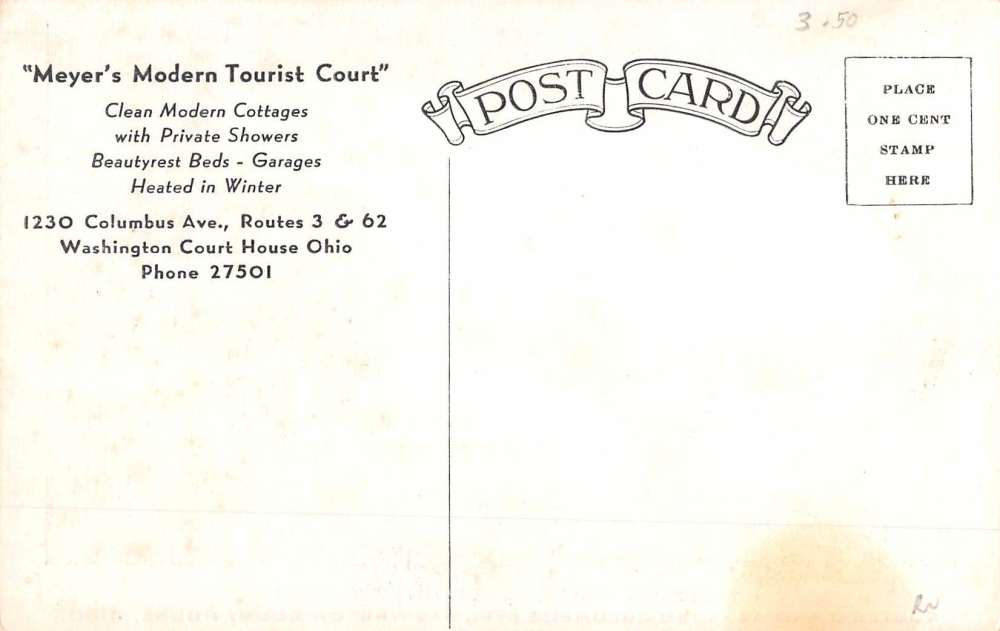 3.50
"Meyer's Modern Tourist Court"
Clean Modern Cottages
with Private Showers
Beautyrest Beds - Garages
Heated in Winter
1230 Columbus Ave., Routes 3 & 62
Washington Court House Ohio
Phone 27501
POST CARD
PLACE
ONE CENT
STAMP
HERE